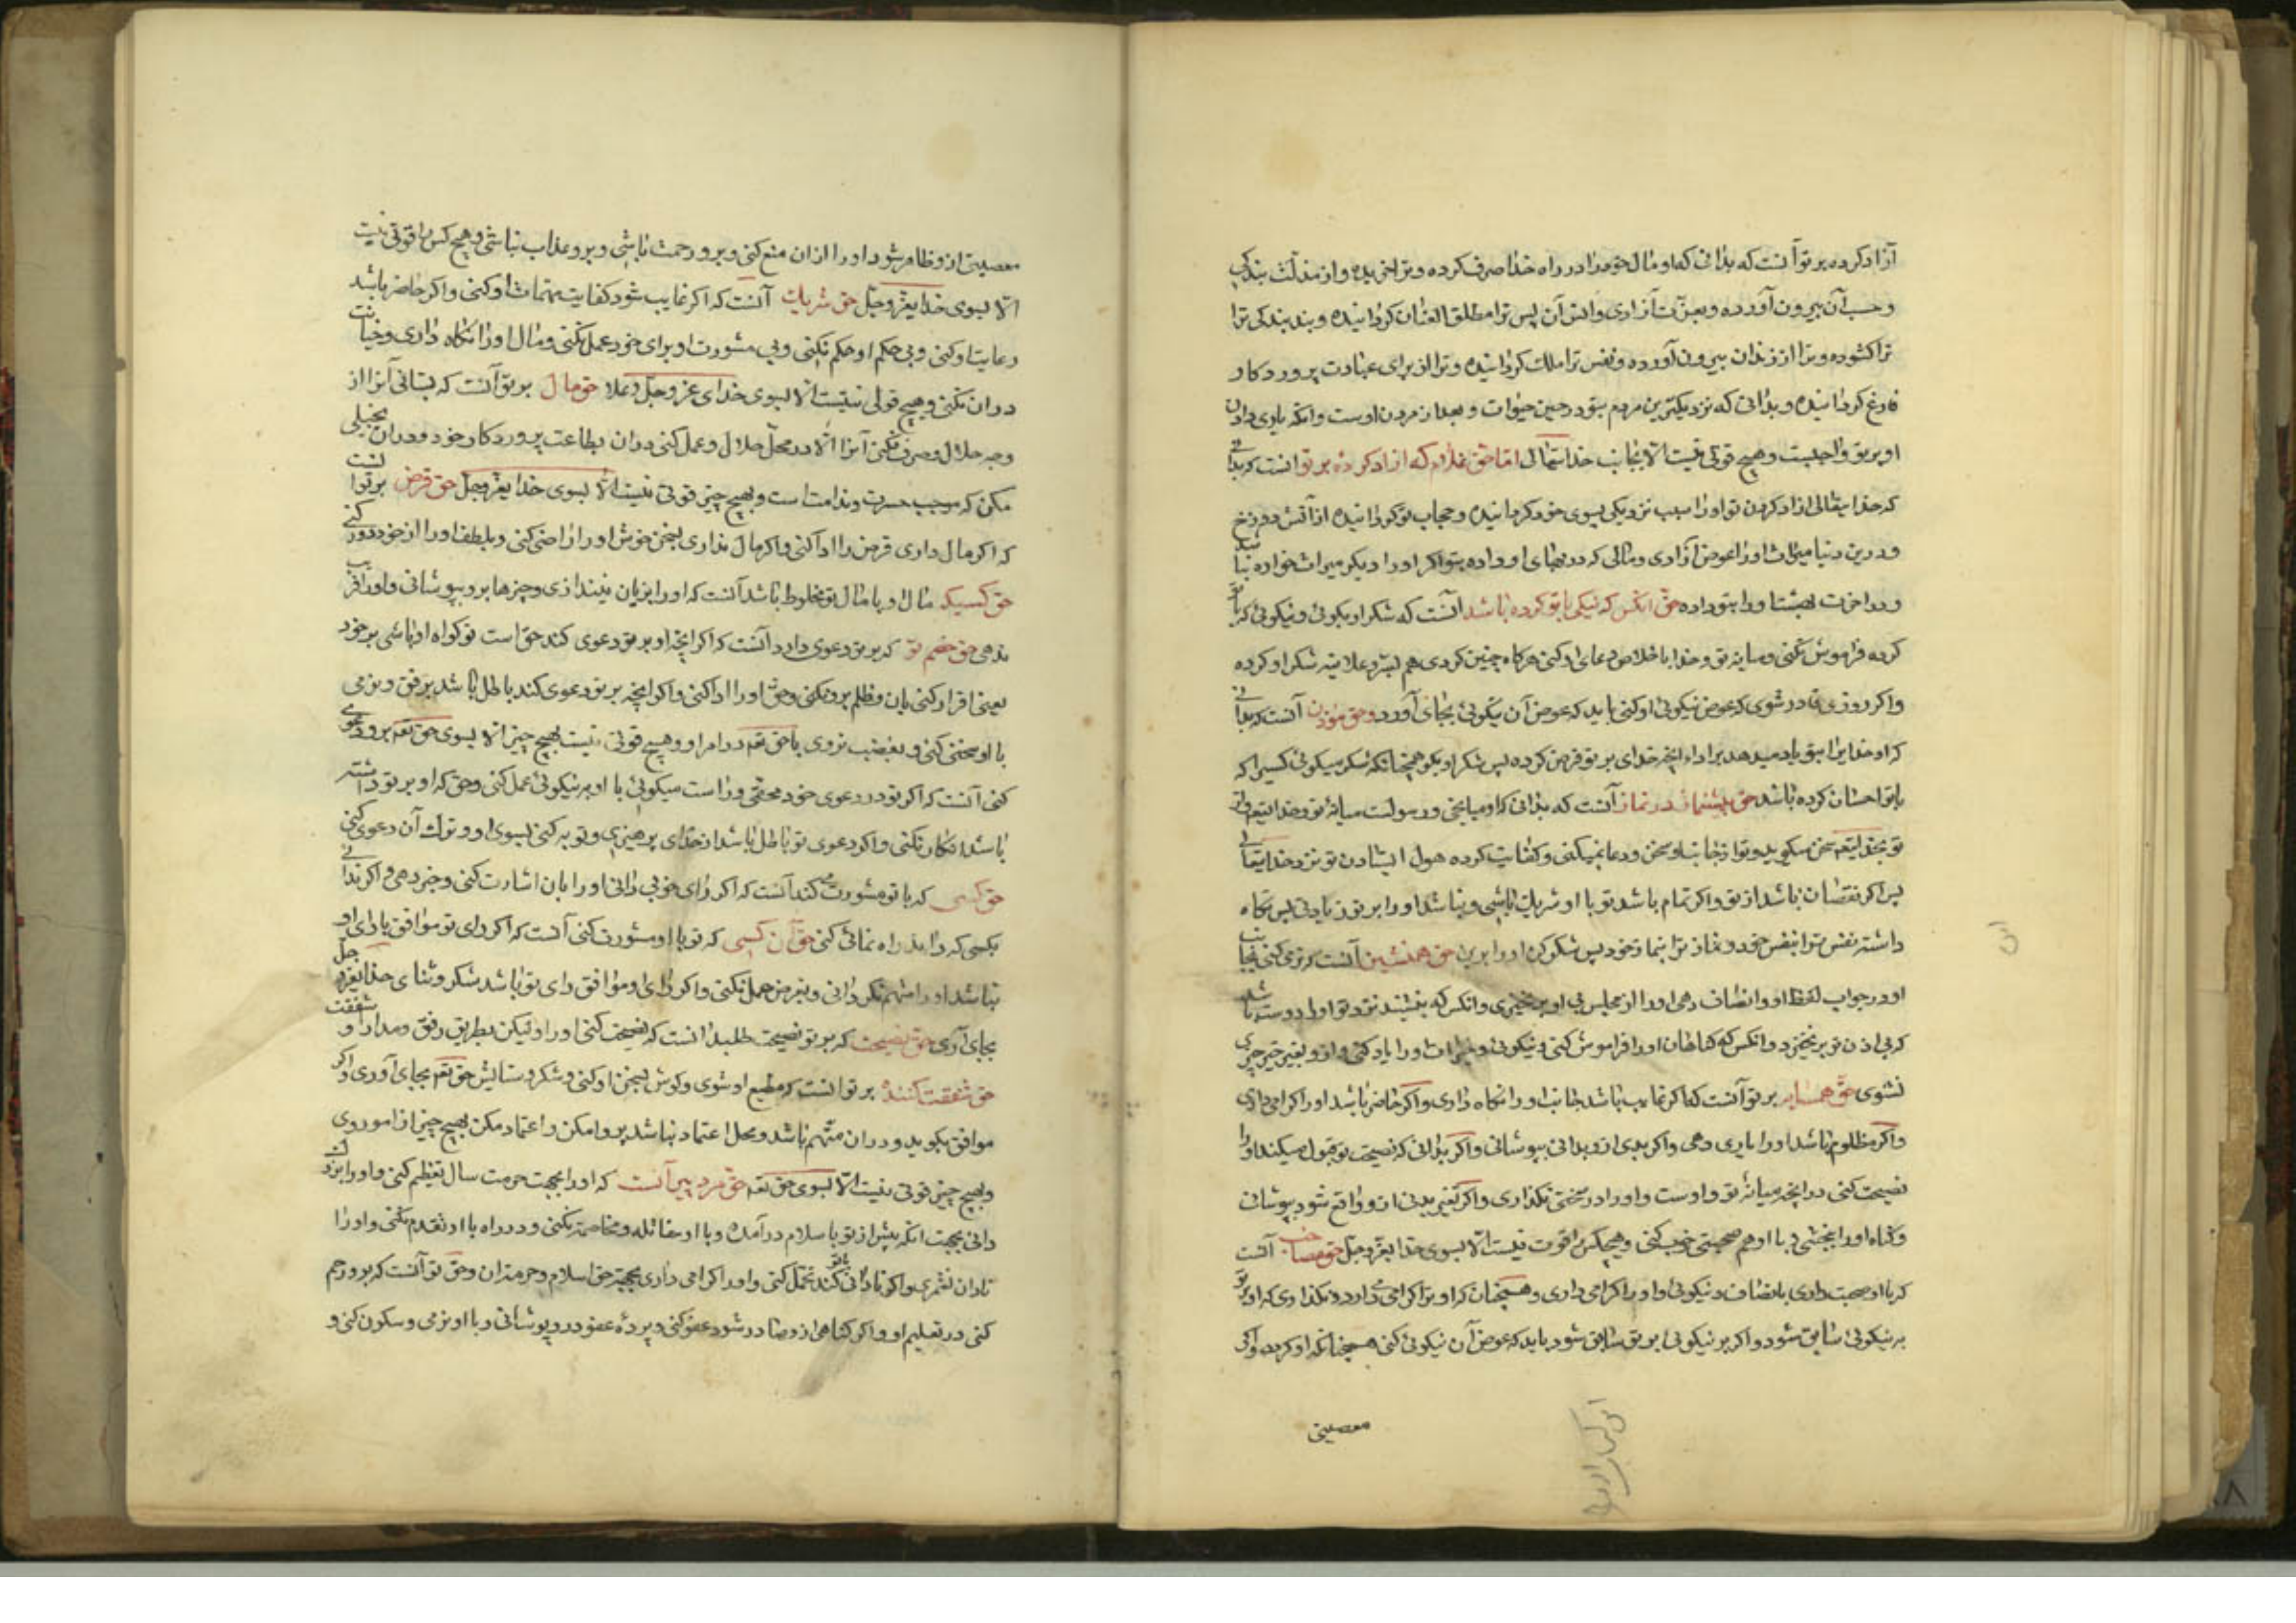 آزاد کرده بر تو آنست که بدانی که او مال خود را در راه خدا صرف کرده و ترا خریده و از مذلت بندگی
و حبس آن بیرون آورده و بعزت آزادی وانس آن پس ترا مطلق العنان کردانیده و بند بندکی ترا
تراکشوده و ترا از زندان بیرون آورده و نفس ترا ملک کردانیده و ترا از برای عبادت پروردکار
فارغ کردانیده و بدانی که نزدیکترین مردم بتو در حین حیوات و بعد از مردن اوست و انکه یاری دادن
او بر تو واجبست و هیچ قوتی نیست الا بجانب خدایتعالی اما حق غلام که ازاد کرده بر تو انست که بدانی
که خدایتعالی ازاد کردن تو او را سبب نزدیکی بسوی خود کردانیده و حجاب تو کردانیده از آتش دوزخ
و درین دنیا میراث او را عوض آزادی و مالی که در بهای او داده بتو اکر او را دیکر میراث خواره نباشد
و در اخرت بهشت را بتو داده حق انکس که نیکی با تو کرده باشد انست که شکر او بکوئی و نیکوئی که با تو
کرده فراموش نکنی و میانه تو و خدا باخلاص دعای او کنی هرکاه چنین کردی هم بسر و علانیه شکر او کرده
و اکر روزی قادر شوی که عوض نیکوئی او کنی باید که عوض آن نیکوئی بجای آورد و حق موذن آنست که بدانی
که او خدایرا بتو یاد میدهد بر اداء انچه خدای بر تو فرض کرده پس شکر او بکو همچنانکه شکر میکوئی کسیرا که
با تو احسان کرده باشد حق پیشنماز در نماز آنست که بدانی که او میانجی و رسولست میانه تو و خدایتعه و از
تو بخدایتعه سخن میکوید و تو از جانب او سخن و دعا نمیکنی و کفایت کرده هول ایستادن تو نزد خدایتعالی
پس اکر نقصان باشد از تو و اکر تمام باشد تو با او شریک باشی و نباشد او را بر تو زیادتی پس نکاه
داشته نفس ترا بنفس خود و نماز ترا بنماز خود پس شکر کن او را برین حق همنشین آنست که نرمی کنی بجانب
او در جواب لفظ او و انصاف دهی او را از مجلس بی او برنخیزی و انکس که بنشیند نزد تو او را دوست باشد
که بی اذن تو برنخیزد و انکس که خطاهای او را فراموش کنی و نیکوئی و خیرات او را یاد کنی و از و بغیر خیر چیزی
نشنوی حق همسایه بر تو آنست که اکر غایب باشد جانب او را نکاه داری و اکر حاضر باشد او را کرامی داری
و اکر مظلوم باشد او را یاری دهی و اکر بدی از و بدانی بپوشانی و اکر بدانی که نصیحت تو قبول میکند او را
نصیحت کنی در انچه میانه تو و اوست و او را در سختی نکذاری و اکر تغیر بدنی از و واقع شود بپوشانی
و کناه او را ببخشی و با او هم صحبتی خوب کنی و هیچکس را قوت نیست الا بسوی خدایعز و جل حق مصاحب آنست
که با او صحبت داری بانصاف و نیکوئی و او را کرامی داری و همچنان که او ترا کرامی دارد و نکذاری که او بر تو
به نیکوئی سابق شود و اکر بر نیکوئی بر تو سابق شود باید که عوض آن نیکوئی کنی همچنانکه او کرده و اکر
معصیتی
معصیتی از و ظاهر شود او را از ان منع کنی و برو رحمت باشی و برو عذاب نباشی و هیچ کس را قوتی نیست
الا بسوی خدایعز و جل حق شریک آنست که اکر غایب شود کفایت مهمات او کنی و اکر حاضر باشد
رعایت او کنی و بی حکم او حکم نکنی و بی مشورت او برای خود عمل نکنی و مال او را نکاه داری و خیانت
در ان نکنی و هیچ قوتی نیست الا بسوی خدای عز و جل و علا حق مال بر تو آنست که نستانی آنرا از
وجه حلال و صرف نکنی آنرا الا در محل حلال و عمل کنی در ان بطاعت پروردکار خود و در ان بخیلی
مکن که موجب حسرت و ندامت است و بهیچ چیز قوتی نیست الا بسوی خدایعز و جل حق قرض بر تو انست
که اکر مال داری قرض را ادا کنی و اکر مال نداری بسخن خوش او را راضی کنی و بلطف او را از خود دور کنی
حق کسیکه مال او با مال تو مخلوط باشد آنست که او را بزیان نیندازی و چیزها برو بپوشانی و او را فریب
ندهی حق خصم تو که بر تو دعوی دارد آنست که اکر انچه او بر تو دعوی کند حق است تو کواه او باشی بر خود
یعنی اقرار کنی بان و ظلم برو نکنی و حق او را ادا کنی و اکر انچه بر تو دعوی کند باطل باشد برفق و نرمی
با او سخن کنی و بغضب نروی با حق تعه در امر او و هیچ قوتی نیست بهیچ چیز الا بسوی حق تعه برو دعوی
کنی آنست که اکر تو در دعوی خود محقی و راست میکوئی با او به نیکوئی عمل کنی و حق که او بر تو داشته
باشد انکار نکنی و اکر دعوی تو باطل باشد از خدای پرهیزی و توبه کنی بسوی او و ترک آن دعوی کنی
حق کسی که با تو مشورت کند آنست که اکر رای خوبی دانی او را بان اشارت کنی و خبر دهی و اکر ندانی
بکسی که داند راه نمائی کنی حق آن کسی که تو با او مشورت کنی آنست که اکر رای تو موافق با رای او
نباشد او را متهم نکردانی و بغرض حمل نکنی و اکر رای او موافق رای تو باشد شکر و ثنای خدایعز و جل
بجای آری حق نصیحت که بر تو نصیحت طلبد انست که نصیحت کنی او را و لیکن بطریق رفق و مدارا و شفقت
حق شفقت کننده بر تو انست که مطیع او شوی و کوش بسخن او کنی و شکر و ستایش حق تعه بجای آوری و اکر
موافق بکوید و در ان متهم باشد و محل اعتماد نباشد پروا مکن و اعتماد مکن بهیچ چیز از امور وی
و بهیچ چیز قوتی نیست الا بسوی حق تعه حق مرد پیر آنست که او را بجهت حرمت سال تعظیم کنی و او را بزرک
دانی بجهت انکه پیش از تو باسلام در آمده و با او مقابله و مخاصمه نکنی و در راه با او تقدم نکنی و او را
نادان نشمری و اکر نادانی کند با تو تحمل کنی و او را کرامی داری بجهت حق اسلام و حرمت ان و حق تو آنست که برو رحم
کنی در تعلیم او و اکر کناهی از و صادر شود عفو کنی و پرده عفو در و پوشانی و با او نرمی و سکون کنی و